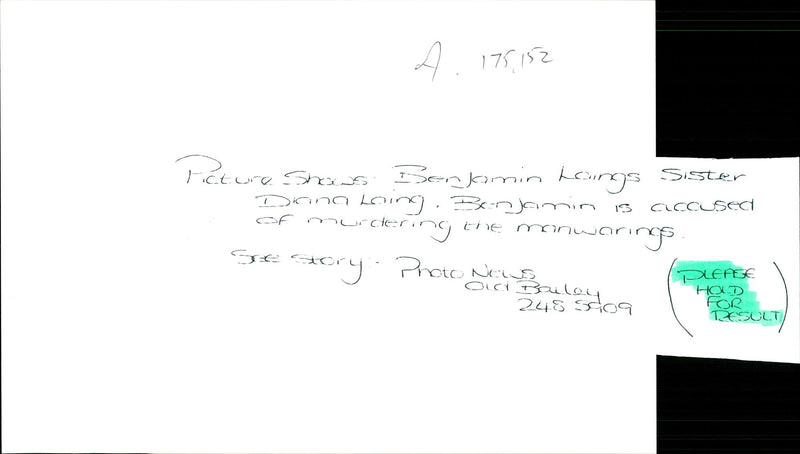 A. 175,152
Picture Shows: Benjamin Laings Sister
Diana Laing. Benjamin is accused
of murdering the manwarings.
See story. Photo News
Old Bailey
248 5909
(PLEASE
HOLD
FOR
RESULT)